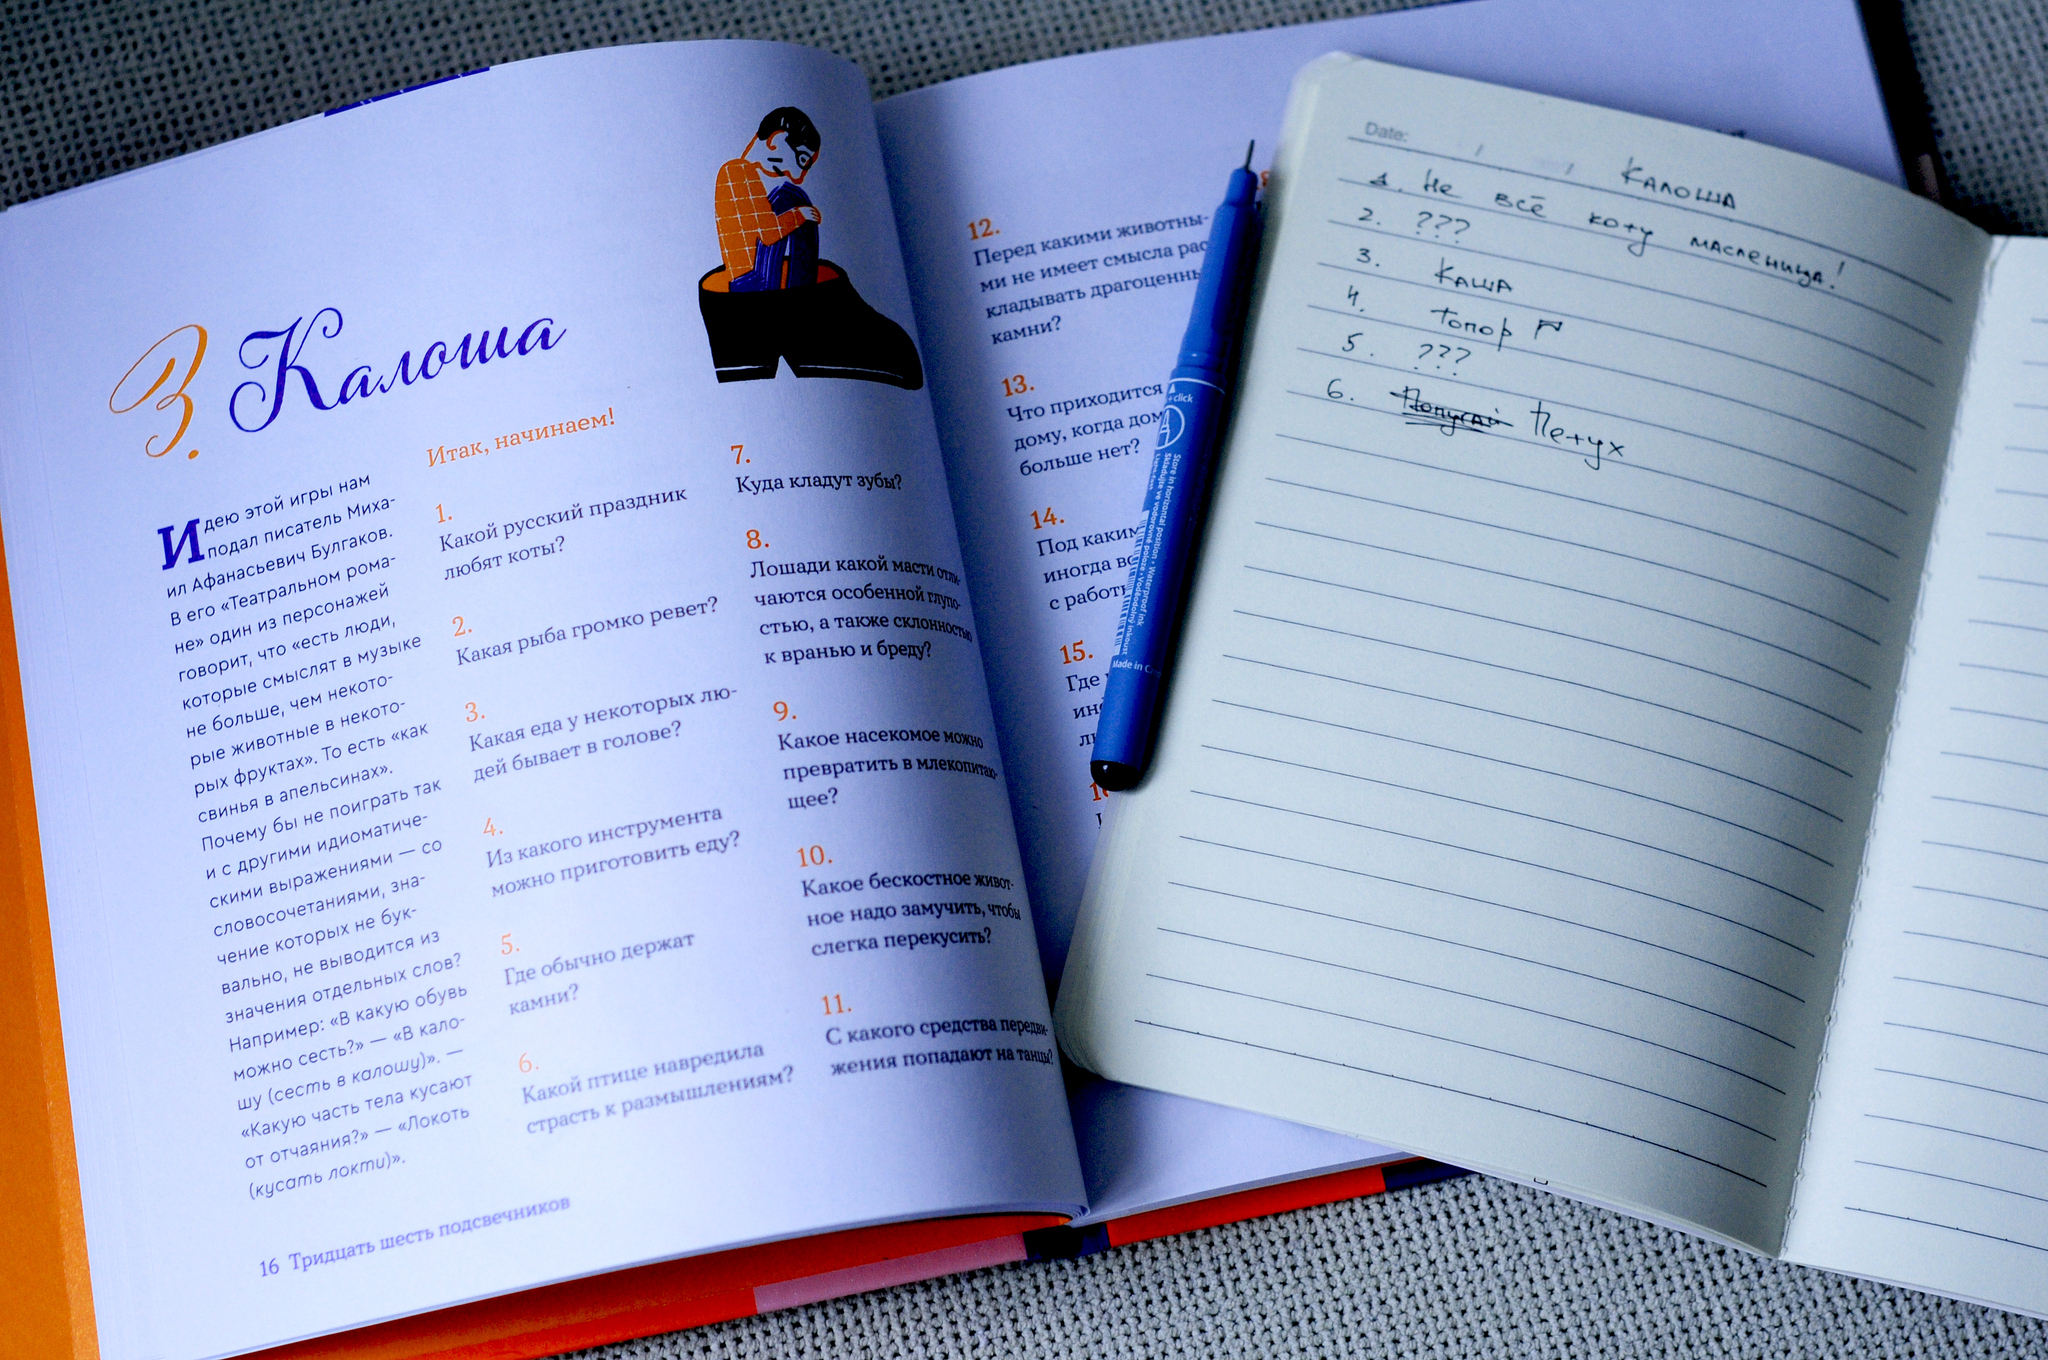 3. Калоша
Идею этой игры нам
подал писатель Миха-
ил Афанасьевич Булгаков.
В его «Театральном рома-
не» один из персонажей
говорит, что «есть люди,
которые смыслят в музыке
не больше, чем некото-
рые животные в некото-
рых фруктах». То есть «как
свинья в апельсинах».
Почему бы не поиграть так
и с другими идиоматиче-
скими выражениями — со
словосочетаниями, зна-
чение которых не бук-
вально, не выводится из
значения отдельных слов?
Например: «В какую обувь
можно сесть?» — «В кало-
шу (сесть в калошу)». —
«Какую часть тела кусают
от отчаяния?» — «Локоть
(кусать локти)».
Итак, начинаем!
1.
Какой русский праздник
любят коты?
2.
Какая рыба громко ревет?
3.
Какая еда у некоторых лю-
дей бывает в голове?
4.
Из какого инструмента
можно приготовить еду?
5.
Где обычно держат
камни?
6.
Какой птице навредила
страсть к размышлениям?
7.
Куда кладут зубы?
8.
Лошади какой масти отли-
чаются особенной глупо-
стью, а также склонностью
к вранью и бреду?
9.
Какое насекомое можно
превратить в млекопитаю-
щее?
10.
Какое бескостное живот-
ное надо замучить, чтобы
слегка перекусить?
11.
С какого средства передви-
жения попадают на танцы?
16 Тридцать шесть подсвечников
12.
Перед какими животны-
ми не имеет смысла рас
кладывать драгоценн
камни?
13.
Что приходится
дому, когда дом
больше нет?
14.
Под каким
иногда во
с работ
15.
Где
+ click
Store in horizontal position • Waterproof ink
Made in
Date: / /
Калоша
1. Не всё коту масленица!
2. ???
3. Каша
4. Топор
5. ???
6. Попугай Петух